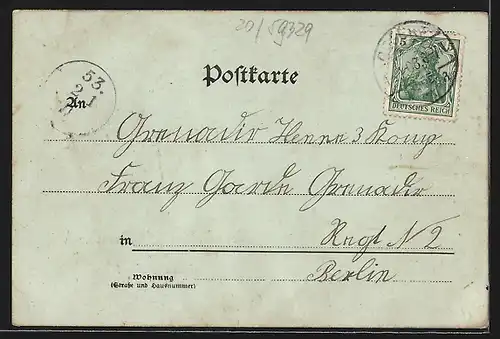 20/59329
Postkarte
5
DEUTSCHES REICH
53.
2-1
An
Grenadir Henne 3 König
Franz Garde Grenadir
in Regt N 2
Berlin
Wohnung
(Straße und Hausnummer)